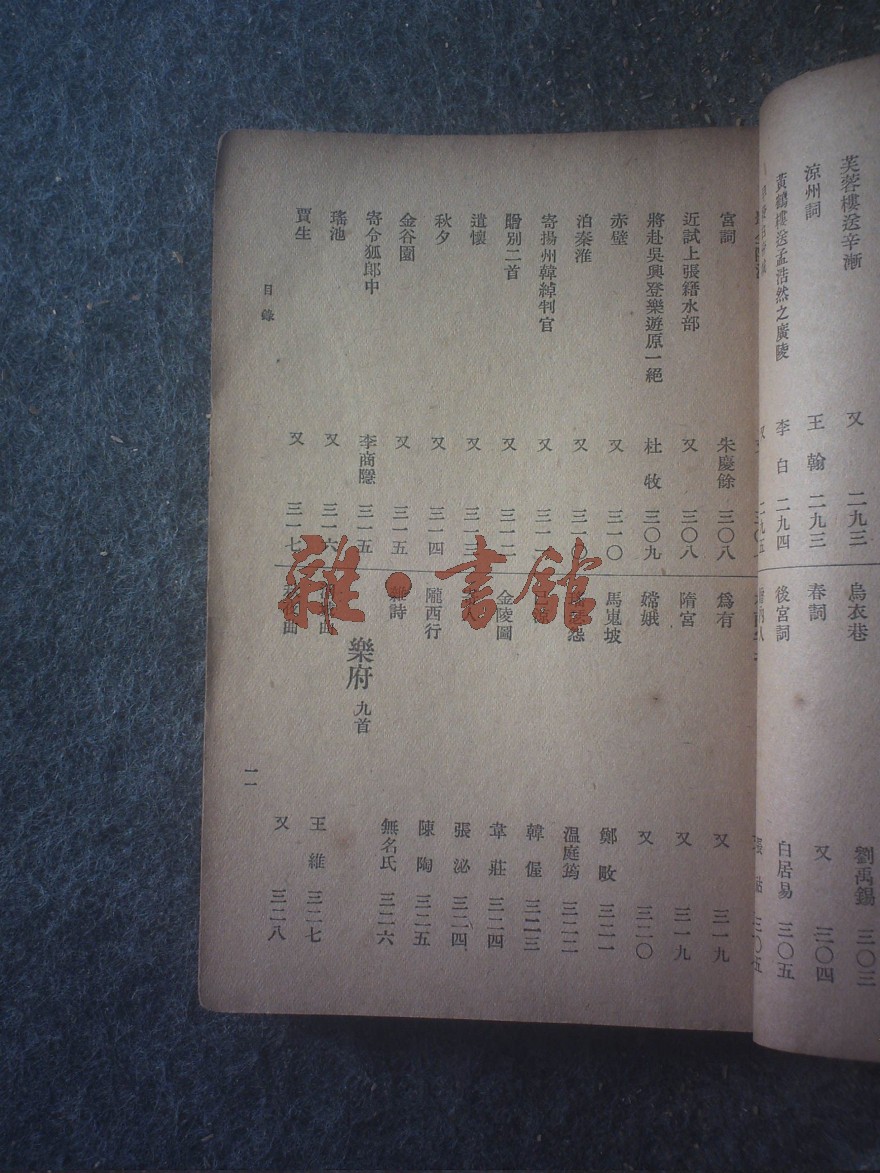 芙蓉樓送辛漸 又 二九三
涼州詞 王翰 二九三
黃鶴樓送孟浩然之廣陵 李白 二九四
烏衣巷 劉禹錫 三〇三
春詞 又 三〇四
後宮詞 白居易 三〇五
宮詞 朱慶餘 三〇八
近試上張籍水部 又 三〇八
將赴吳興登樂遊原一絕 杜牧 三〇九
赤壁 又 三一〇
泊秦淮 又
寄揚州韓綽判官 又
贈別二首 又 三一二
遣懷 又 三一三
秋夕 又 三一四
金谷園 又 三一五
寄令狐郎中 李商隱 三一五
瑤池 又 三一六
賈生 又 三一七
爲有 又 三一九
隋宮 又 三一九
嫦娥 又 三二〇
馬嵬坡 鄭畋 三二一
溫庭筠 三二二
韓偓 三二三
金陵圖 韋莊 三二四
張泌 三二四
隴西行 陳陶 三二五
雜詩 無名氏 三二六
樂府 九首
王維 三二七
又 三二八
目錄
一一
雜·書館